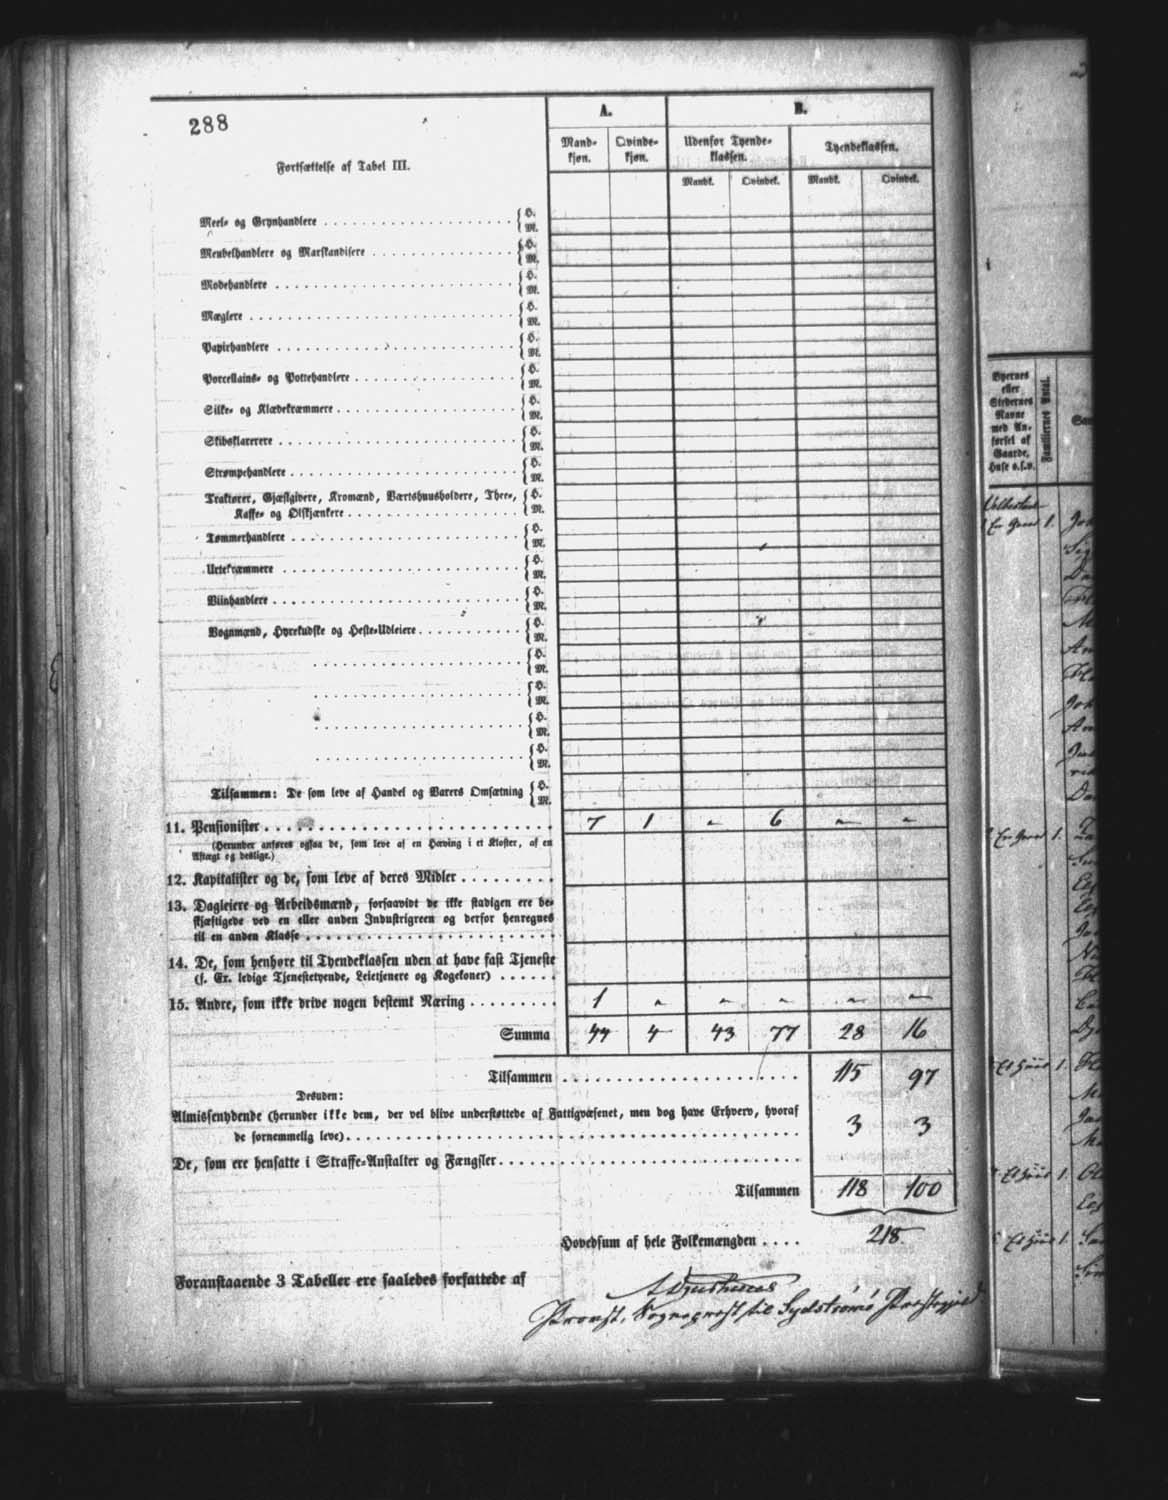 288
Fortsættelse af Tabel III.
A.
B.
Mand-
kjøn.
Qvinde-
kjøn.
Udenfor Tyende-
klassen.
Tyendeklassen.
Mandk.
Qvindek.
Mandk.
Qvindek.
Meel- og Grynhandlere . . . { H.
M.
Meubelhandlere og Marskandisere . . . { H.
M.
Modehandlere . . . { H.
M.
Mæglere . . . { H.
M.
Papirhandlere . . . { H.
M.
Porcellains- og Pottehandlere . . . { H.
M.
Silke- og Klædekræmmere . . . { H.
M.
Skibsklarerere . . . { H.
M.
Strømpehandlere . . . { H.
M.
Traktører, Gjæstgivere, Kromænd, Værtshuusholdere, Thee-, { H.
Kaffe- og Ølskjænkere . . . M.
Tømmerhandlere . . . { H.
M.
Urtekræmmere . . . { H.
M.
Viinhandlere . . . { H.
M.
Vognmænd, Hyrekudske og Heste-Udleiere . . . { H.
M.
. . . { H.
M.
. . . { H.
M.
. . . { H.
M.
. . . { H.
M.
Tilsammen: De som leve af Handel og Varers Omsætning { H.
M.
11. Pensionister . . . 7 1 " 6 " "
(Herunder anføres ogsaa de, som leve af en Hæving i et Kloster, af en
Aftægt og deslige.)
12. Kapitalister og de, som leve af deres Midler . . .
13. Dagleiere og Arbeidsmænd, forsaavidt de ikke stadigen ere be-
skjæftigede ved en eller anden Industrigreen og derfor henregnes
til en anden Klasse . . .
14. De, som henhøre til Tyendeklassen uden at have fast Tjeneste
(f. Ex. ledige Tjenestetyende, Leietjenere og Kogekoner) . . .
15. Andre, som ikke drive nogen bestemt Næring . . . 1 " " " " "
Summa 44 4 43 77 28 16
Tilsammen . . . 115 97
Desuden:
Almissenydende (herunder ikke dem, der vel blive understøttede af Fattigvæsenet, men dog have Erhverv, hvoraf
de fornemmelig leve) . . . 3 3
De, som ere hensatte i Straffe-Anstalter og Fængsler . . .
Tilsammen 118 100
Hovedsum af hele Folkemængden . . . . 218
Foranstaaende 3 Tabeller ere saaledes forfattede af
Provst, Sognepræst til Sydstrømø Præstegjeld
Byernes
eller
Stedernes
Navne
med An-
førsel af
Gaarde,
Huse o.s.v.
Familiernes Antal.
En Gaard 1.
En Gaard 1.
Et Huus 1.
Et Huus 1.
Et Huus 1.